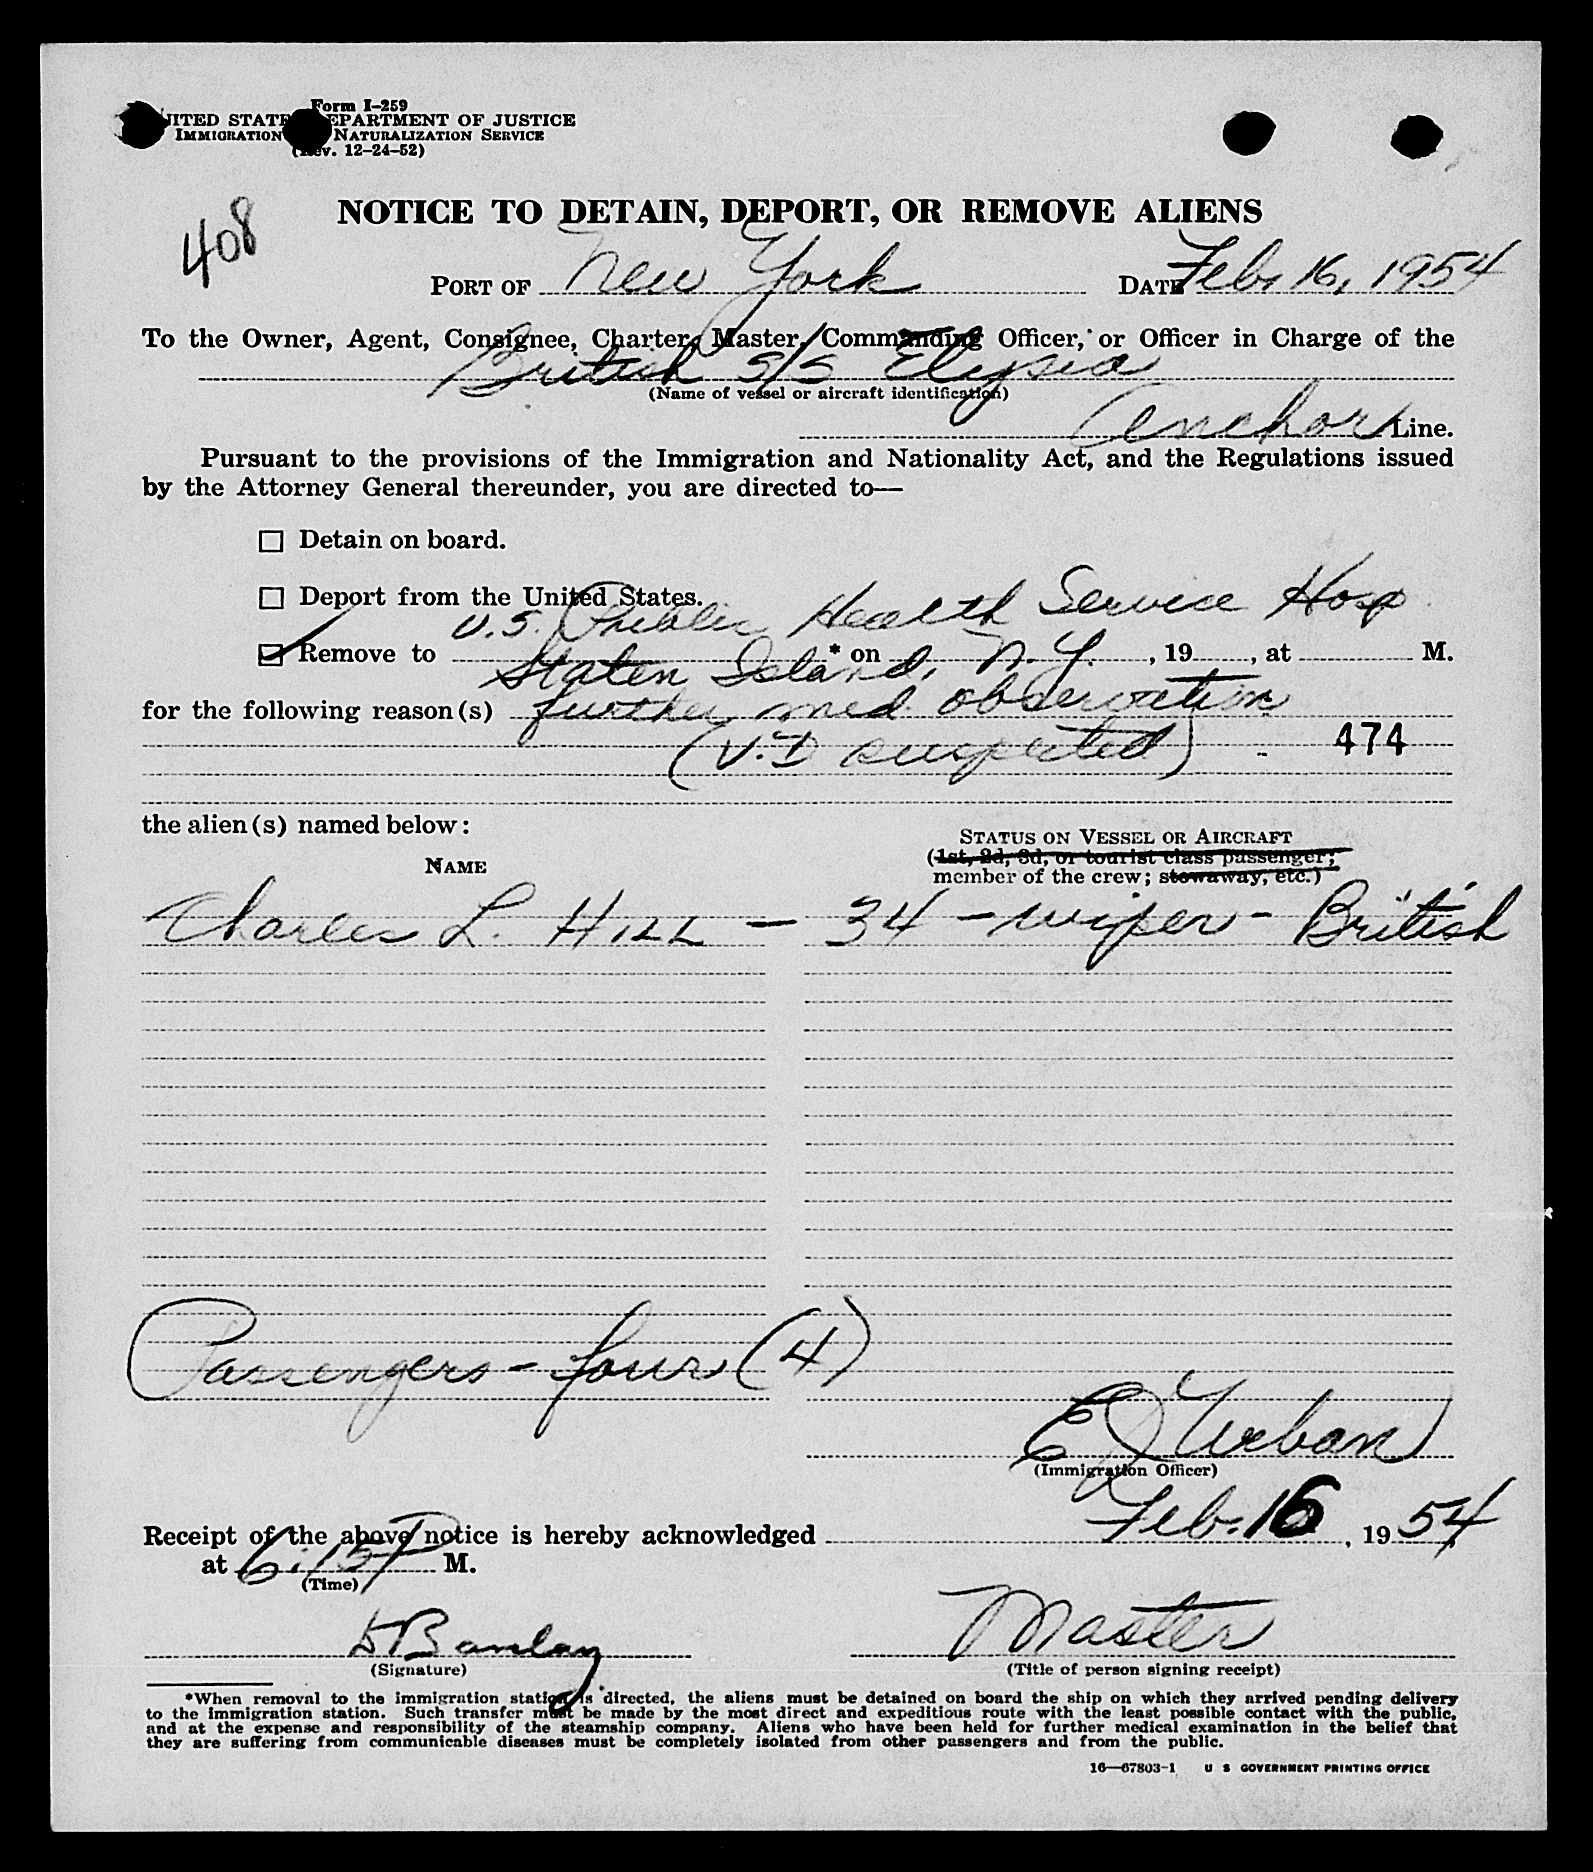 Form I-259
UNITED STATES DEPARTMENT OF JUSTICE
IMMIGRATION NATURALIZATION SERVICE
(Rev. 12-24-52)
408
NOTICE TO DETAIN, DEPORT, OR REMOVE ALIENS
PORT OF New York DATE Feb. 16, 1954
To the Owner, Agent, Consignee, Charter, Master, Commanding Officer, or Officer in Charge of the
British S/S Elysia
(Name of vessel or aircraft identification)
Anchor Line.
Pursuant to the provisions of the Immigration and Nationality Act, and the Regulations issued
by the Attorney General thereunder, you are directed to—
☐ Detain on board.
☐ Deport from the United States.
U.S. Public Health Service Hosp
☑ Remove to * on , 19 , at M.
Staten Island, N.Y.
for the following reason(s) further med. observation
(V.D suspected) 474
the alien(s) named below:
STATUS ON VESSEL OR AIRCRAFT
NAME (1st, 2d, 3d, or tourist class passenger;
member of the crew; stowaway, etc.)
Charles L. HILL — 34 - wiper - British
Passengers - four (4)
E J Urban
(Immigration Officer)
Receipt of the above notice is hereby acknowledged Feb. 16, 1954
at 6:15 P M.
(Time)
Master
(Signature) (Title of person signing receipt)
*When removal to the immigration station is directed, the aliens must be detained on board the ship on which they arrived pending delivery
to the immigration station. Such transfer must be made by the most direct and expeditious route with the least possible contact with the public,
and at the expense and responsibility of the steamship company. Aliens who have been held for further medical examination in the belief that
they are suffering from communicable diseases must be completely isolated from other passengers and from the public.
16—67803-1 U S GOVERNMENT PRINTING OFFICE